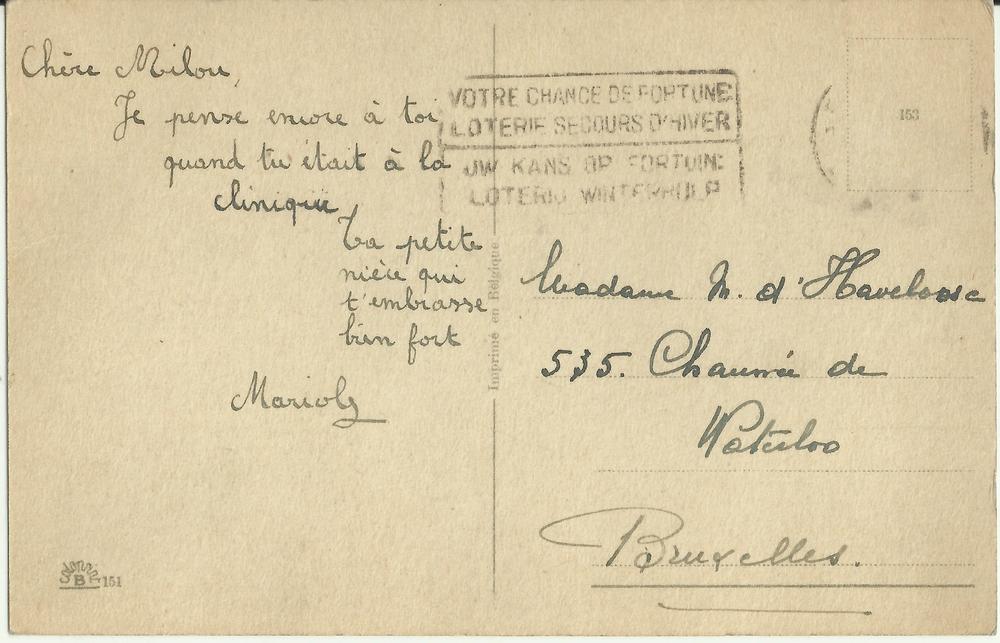 Chère Milou,
Je pense encore à toi
quand tu était à la
clinique,
Ta petite
nièce qui
t'embrasse
bien fort
Marioly
VOTRE CHANCE DE FORTUNE:
LOTERIE SECOURS D'HIVER
UW KANS OP FORTUIN:
LOTERIJ WINTERHULP
153
Imprimé en Belgique
Madame M. d'Haveloose
535. Chaussée de
Waterloo
Bruxelles.
B 151